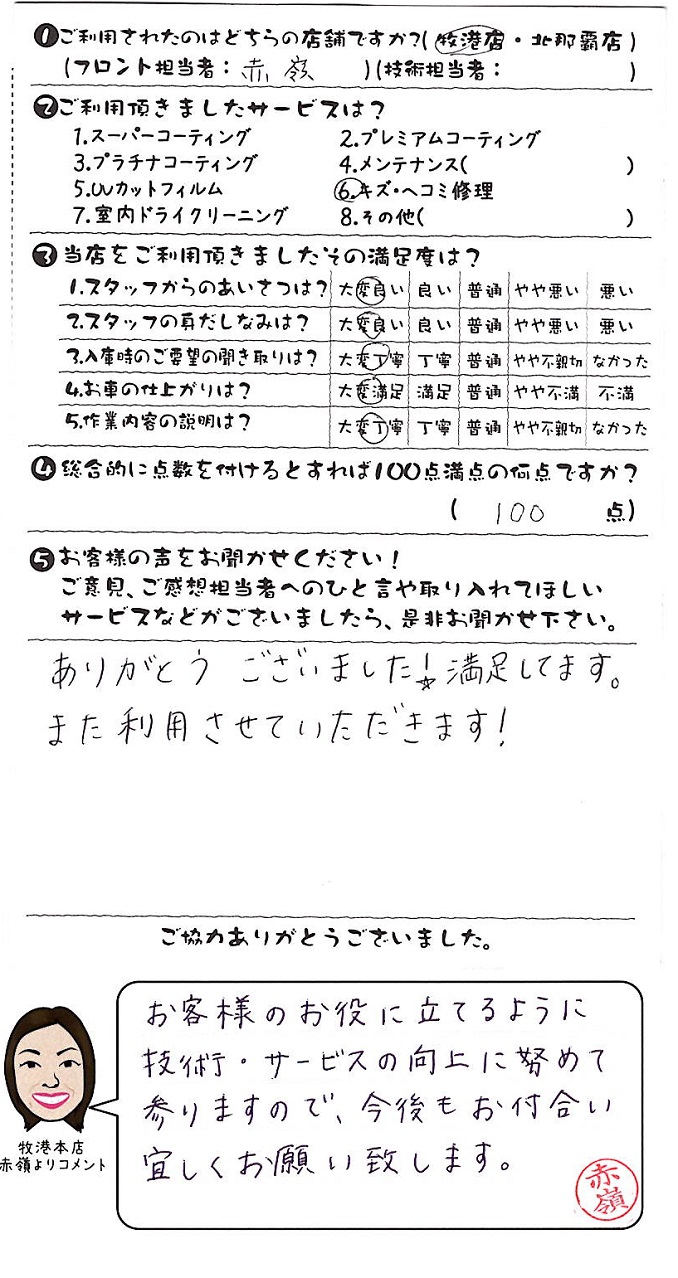 ❶ご利用されたのはどちらの店舗ですか?(牧港店・北那覇店)
(フロント担当者：赤嶺)(技術担当者：)
❷ご利用頂きましたサービスは？
1.スーパーコーティング 2.プレミアムコーティング
3.プラチナコーティング 4.メンテナンス( )
5.UVカットフィルム 6.キズ・ヘコミ修理
7.室内ドライクリーニング 8.その他( )
❸当店をご利用頂きましたその満足度は？
1.スタッフからのあいさつは? 大変良い 良い 普通 やや悪い 悪い
2.スタッフの身だしなみは? 大変良い 良い 普通 やや悪い 悪い
3.入庫時のご要望の聞き取りは? 大変丁寧 丁寧 普通 やや不親切 なかった
4.お車の仕上がりは? 大変満足 満足 普通 やや不満 不満
5.作業内容の説明は? 大変丁寧 丁寧 普通 やや不親切 なかった
❹総合的に点数を付けるとすれば100点満点の何点ですか？
( 100 点)
❺お客様の声をお聞かせください！
ご意見、ご感想担当者へのひと言や取り入れてほしい
サービスなどがございましたら、是非お聞かせ下さい。
ありがとう ございました!☆満足してます。
また利用させていただきます!
ご協力ありがとうございました。
お客様のお役に立てるように
技術・サービスの向上に努めて
参りますので、今後もお付合い
宜しくお願い致します。
赤嶺
牧港本店
赤嶺よりコメント